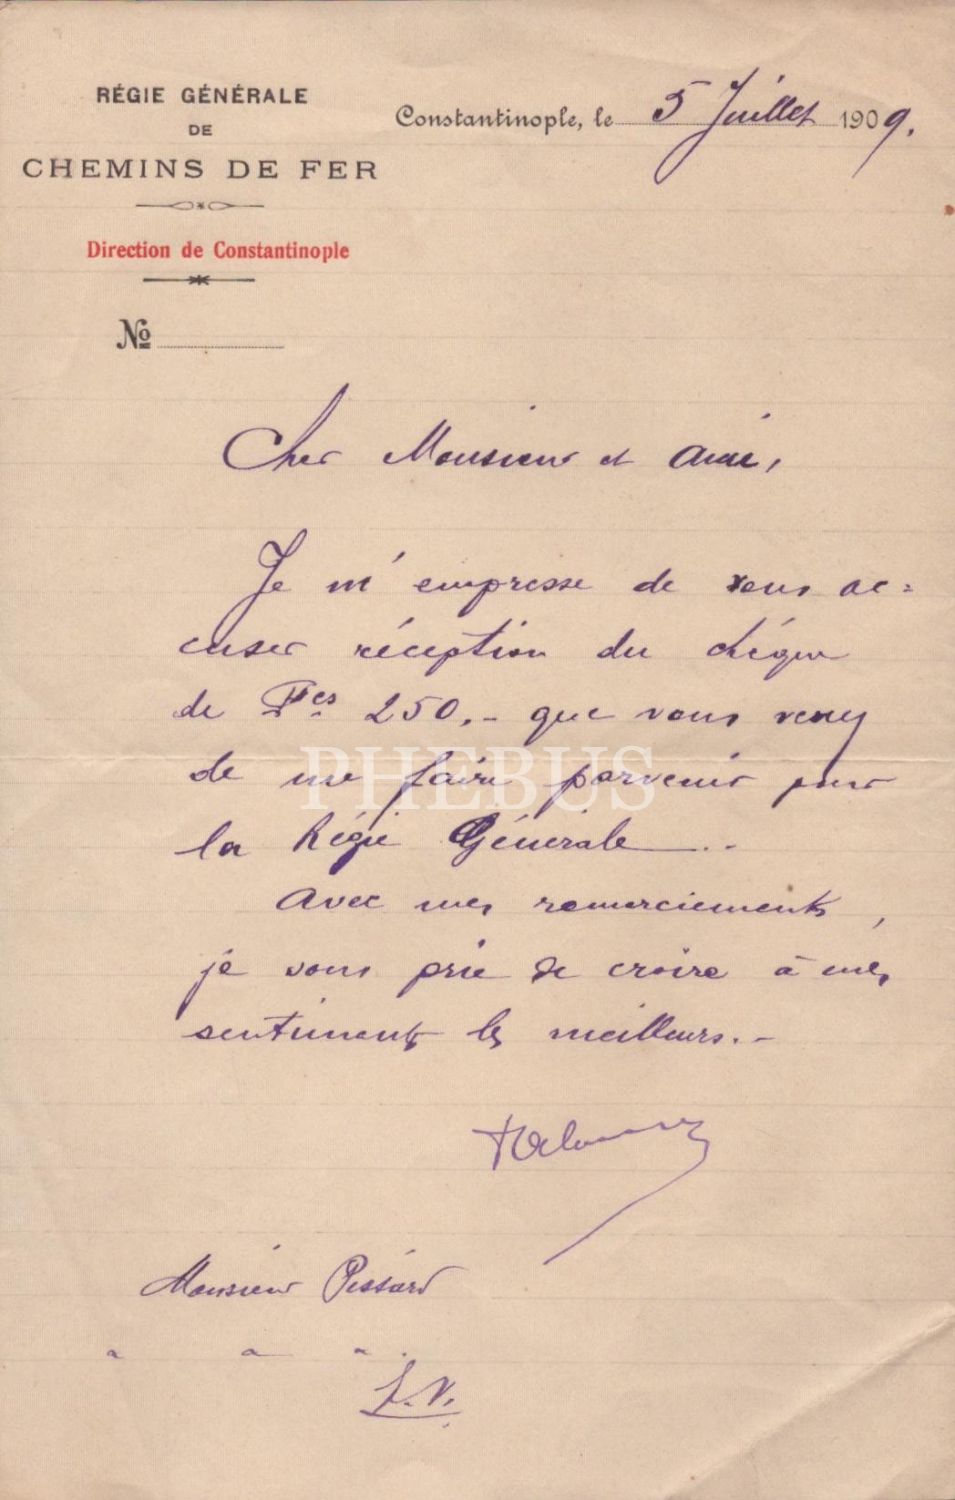 RÉGIE GÉNÉRALE
DE
CHEMINS DE FER
Direction de Constantinople
No
Constantinople, le 5 Juillet 1909.
Cher Monsieur et Ami,
Je m'empresse de vous ac=
cuser réception du chèque
de Fcs 250.- que vous venez
de me faire parvenir pour
la Régie Générale..-
Avec mes remerciements,
je vous prie de croire à mes
sentiments les meilleurs.-
Monsieur Pissard
PHEBUS